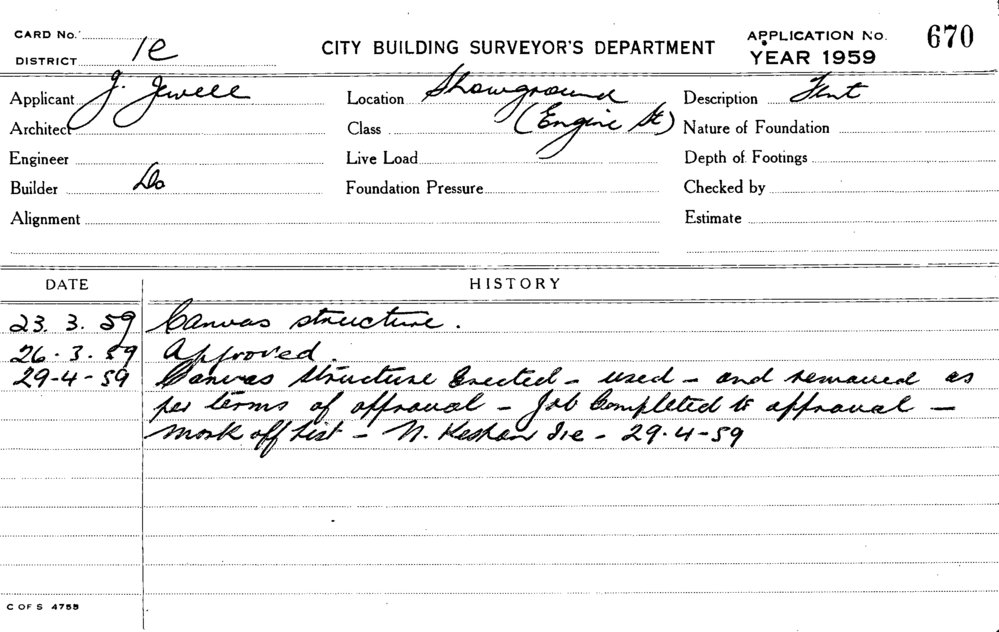 CARD No.
DISTRICT 1e
CITY BUILDING SURVEYOR'S DEPARTMENT
APPLICATION No. 670
YEAR 1959
Applicant J. Jewell
Location Showground
Description Tent
Architect
Class (Engine St)
Nature of Foundation
Engineer
Live Load
Depth of Footings
Builder Do
Foundation Pressure
Checked by
Alignment
Estimate
DATE HISTORY
23. 3. 59 Canvas structure.
26. 3. 59 Approved.
29-4-59 Canvas structure Erected - used - and removed as
per terms of approval - Job Completed to approval -
mark off list - N. 29.4-59
C OF S 4755